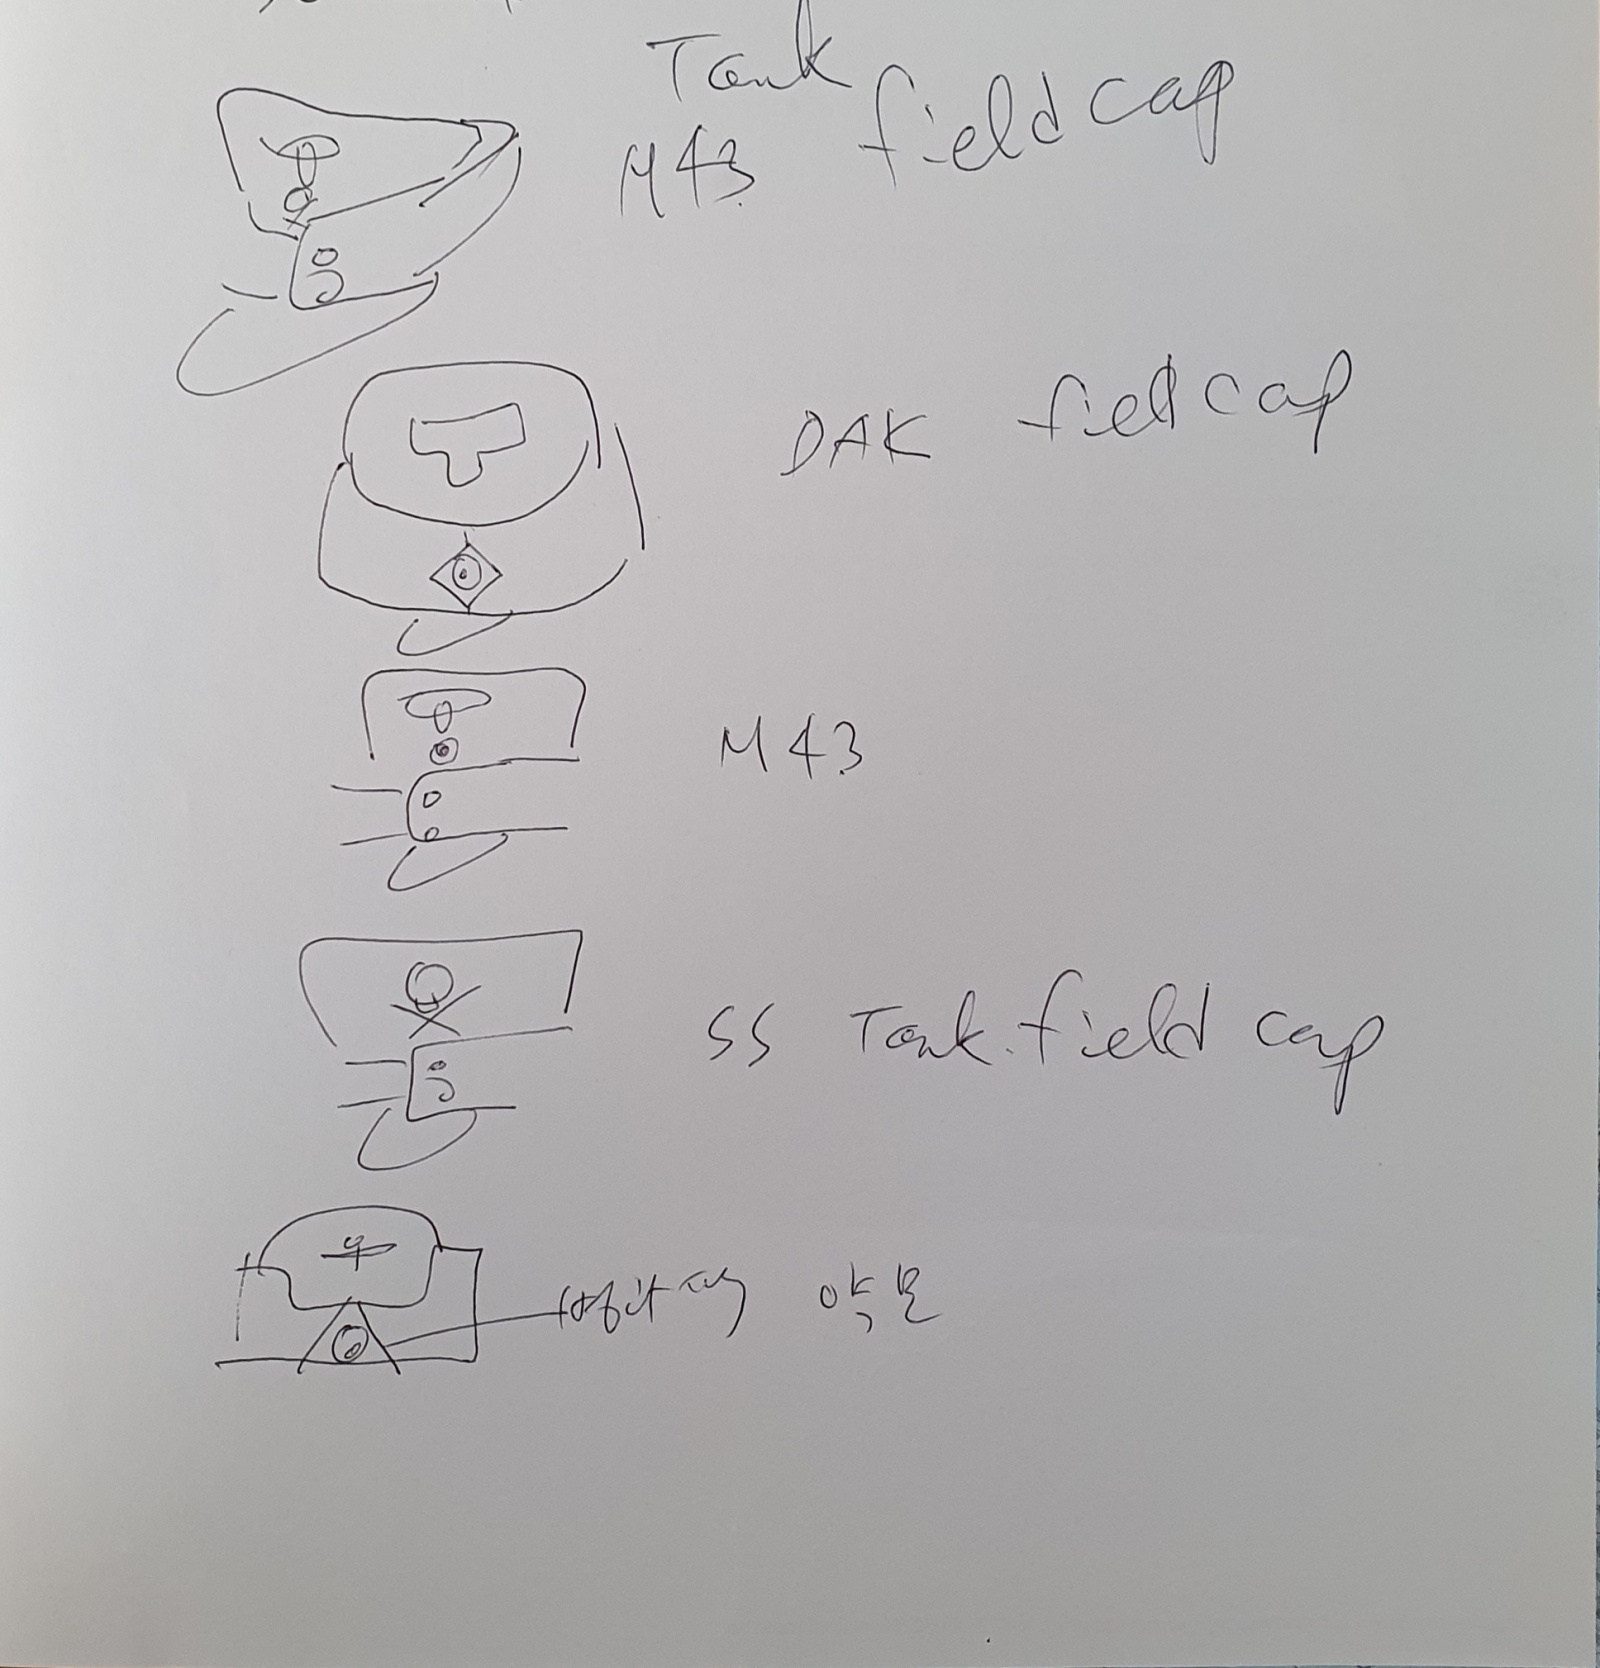 Tank
M43 field cap
DAK field cap
M43
SS Tank field cap
약모